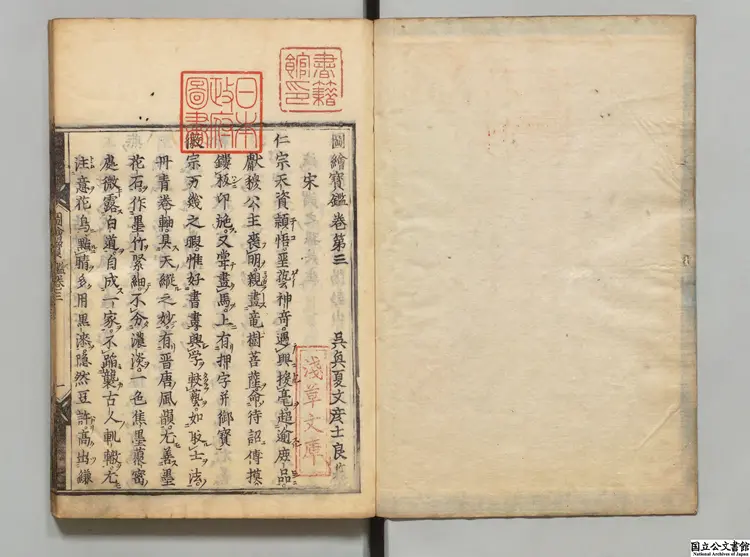 書籍館印
日本政府圖書
圖繪寶鑑卷第三 呉興夏文彦士良
宋
仁宗天資頴悟聖藝神奇遇興援毫超逾庶品
獻穆公主喪明親畫竜樹菩薩命待詔傳模
鏤板印施又嘗畫馬上有押字并御寶
徽宗万幾之暇惟好書畫興學較藝如取士法
丹青卷軸具天縱之妙有晋唐風韻尤善墨
花石作墨竹緊細不分濃淡一色焦墨叢密
處微露白道自成一家不蹈襲古人軌轍尤
注意花鳥點睛多用黒漆隱然豆許髙出縑
圖繪寶鑑卷三
淺草文庫
国立公文書館
National Archives of Japan